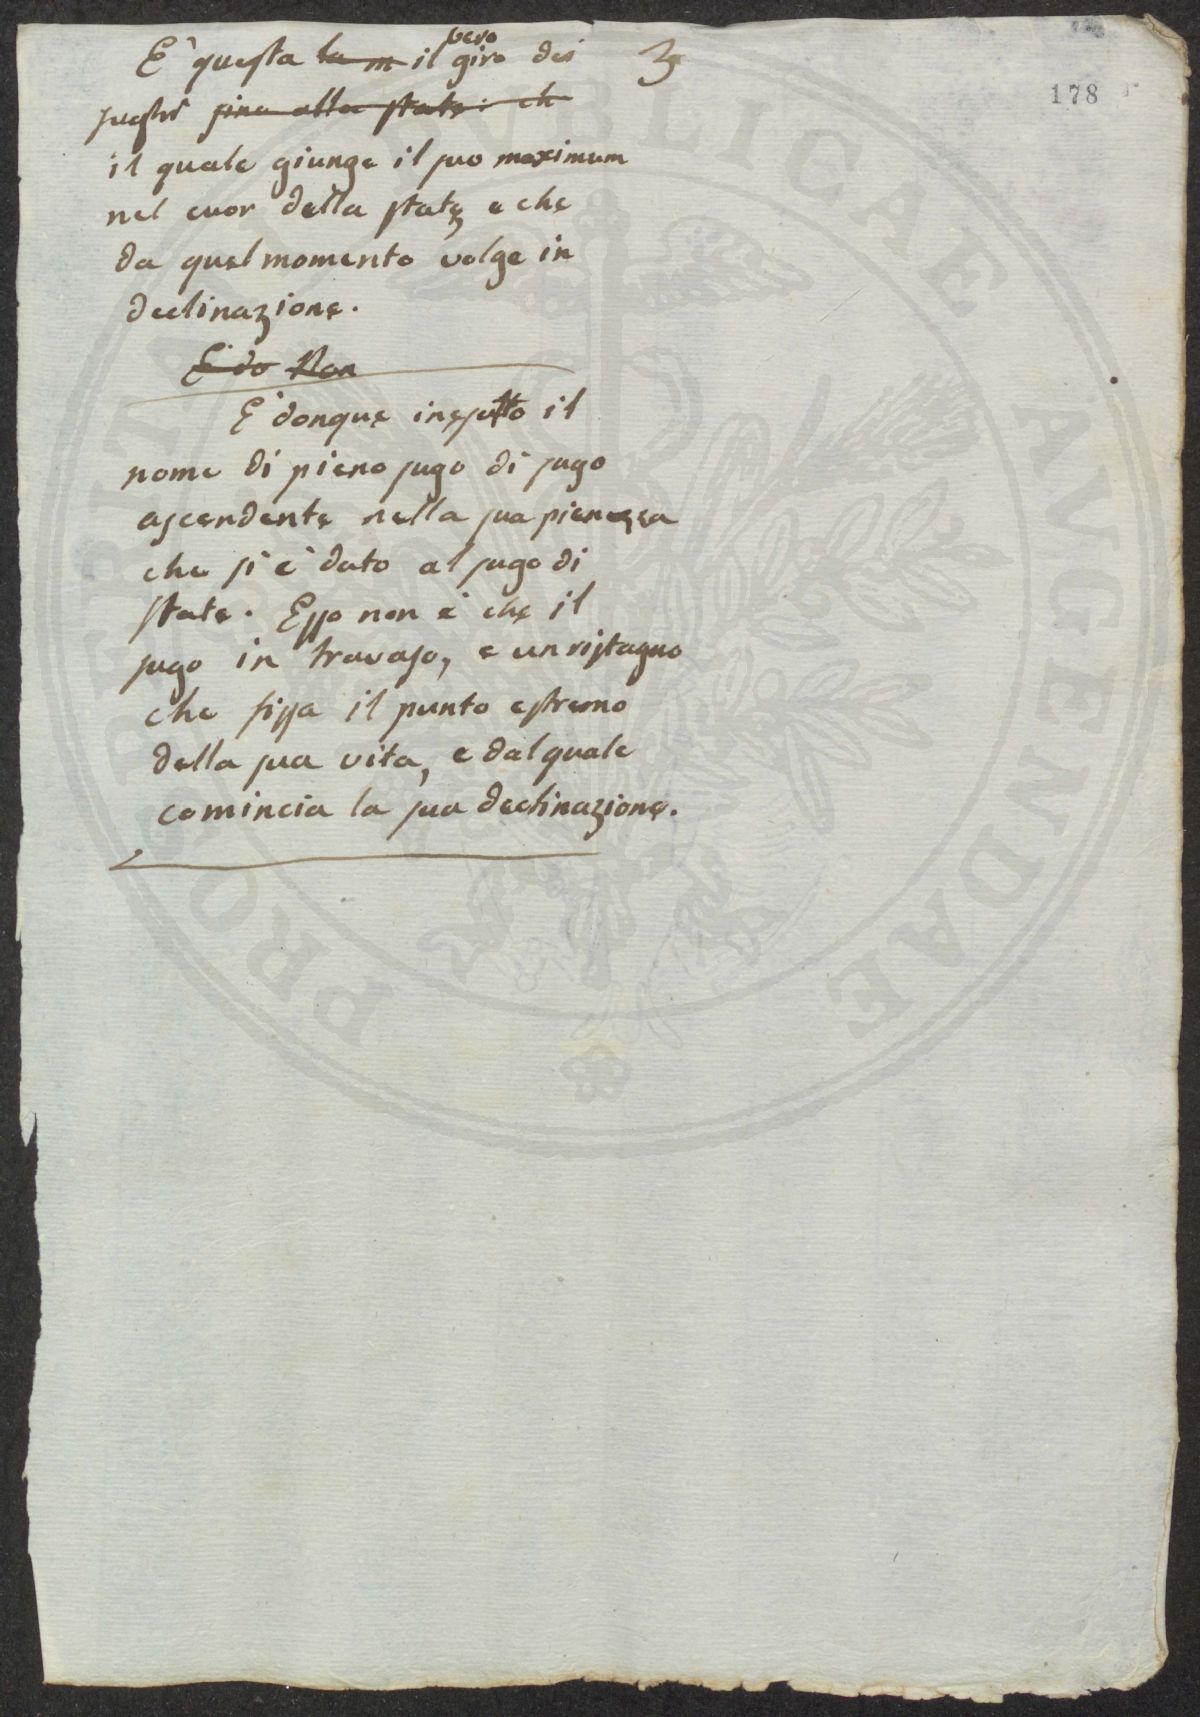 E' questa la m il vero giro dei 3
sughi sino alla state: ch
il quale giunge il suo maximum
nel cuor della state, e che
da quel momento volge in
declinazione.
E do Non
E' donque inesatto il
nome di pieno sugo di sugo
ascendente nella sua pienezza
che si è dato al sugo di
state. Esso non è che il
sugo in travaso, e un ristagno
che fissa il punto estremo
della sua vita, e dal quale
comincia la sua declinazione.
178
PROSPERITATI PVBLICAE AVGENDAE